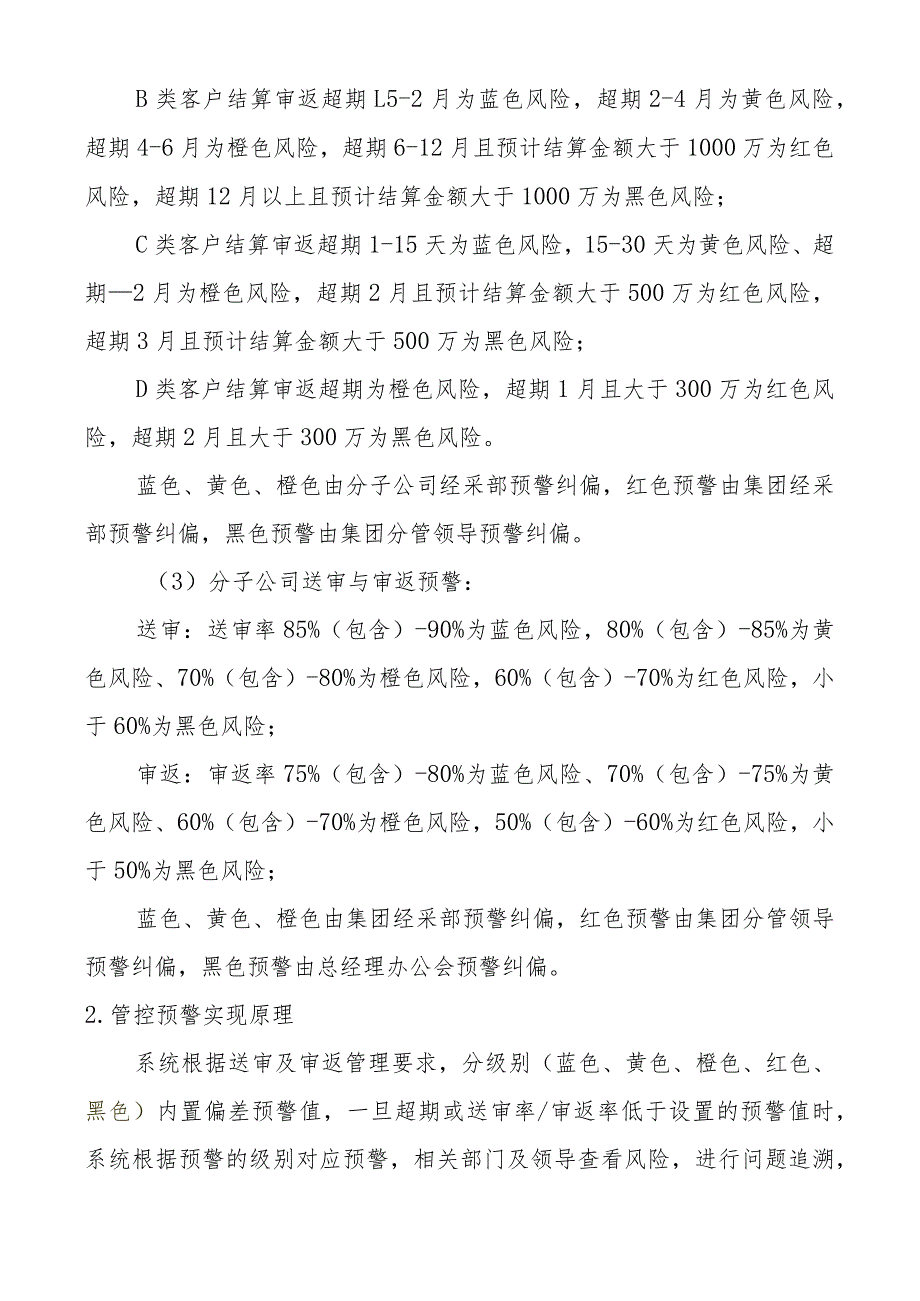 B 类客户结算审返超期 L5-2 月为蓝色风险，超期 2-4 月为黄色风险，
超期 4-6 月为橙色风险，超期 6-12 月且预计结算金额大于 1000 万为红色
风险，超期 12 月以上且预计结算金额大于 1000 万为黑色风险；
C 类客户结算审返超期 1-15 天为蓝色风险，15-30 天为黄色风险、超
期—2 月为橙色风险，超期 2 月且预计结算金额大于 500 万为红色风险，
超期 3 月且预计结算金额大于 500 万为黑色风险；
D 类客户结算审返超期为橙色风险，超期 1 月且大于 300 万为红色风
险，超期 2 月且大于 300 万为黑色风险。
蓝色、黄色、橙色由分子公司经采部预警纠偏，红色预警由集团经采
部预警纠偏，黑色预警由集团分管领导预警纠偏。
（3）分子公司送审与审返预警：
送审：送审率 85%（包含）-90%为蓝色风险，80%（包含）-85%为黄
色风险、70%（包含）-80%为橙色风险，60%（包含）-70%为红色风险，小
于 60%为黑色风险；
审返：审返率 75%（包含）-80%为蓝色风险、70%（包含）-75%为黄
色风险、60%（包含）-70%为橙色风险，50%（包含）-60%为红色风险，小
于 50%为黑色风险；
蓝色、黄色、橙色由集团经采部预警纠偏，红色预警由集团分管领导
预警纠偏，黑色预警由总经理办公会预警纠偏。
2.管控预警实现原理
系统根据送审及审返管理要求，分级别（蓝色、黄色、橙色、红色、
黑色）内置偏差预警值，一旦超期或送审率/审返率低于设置的预警值时，
系统根据预警的级别对应预警，相关部门及领导查看风险，进行问题追溯，